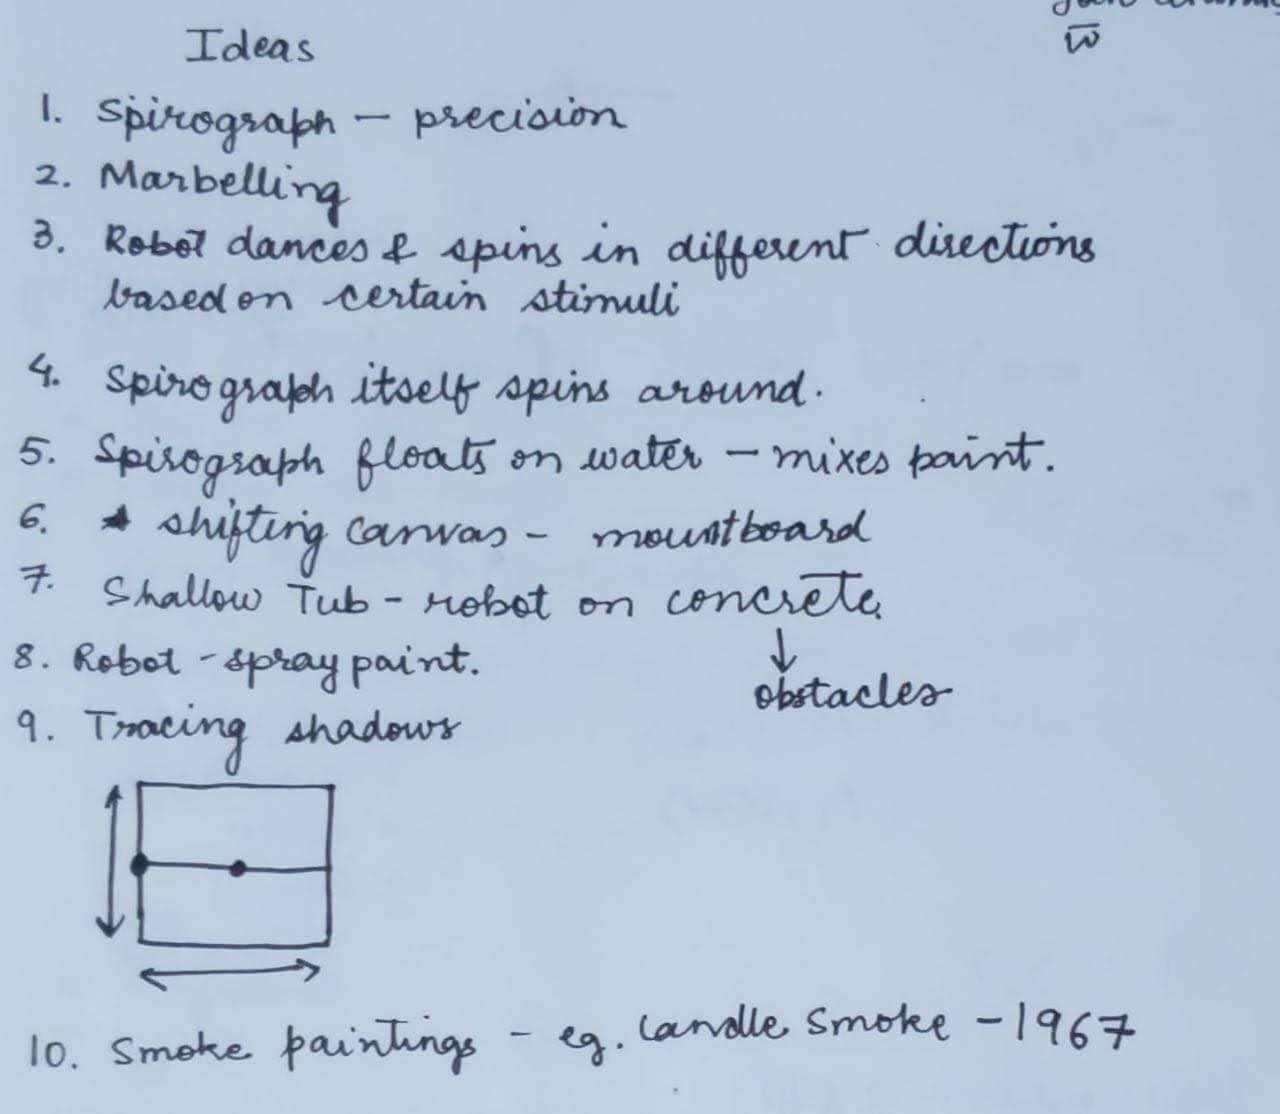 Ideas
1. Spirograph - precision
2. Marbelling
3. Robot dances & spins in different directions
based on certain stimuli
4. Spirograph itself spins around.
5. Spirograph floats on water - mixes paint.
6. shifting canvas - mountboard
7. Shallow Tub - robot on concrete
↓
obstacles
8. Robot - spray paint.
9. Tracing shadows
10. Smoke paintings - eg. Candle Smoke - 1967